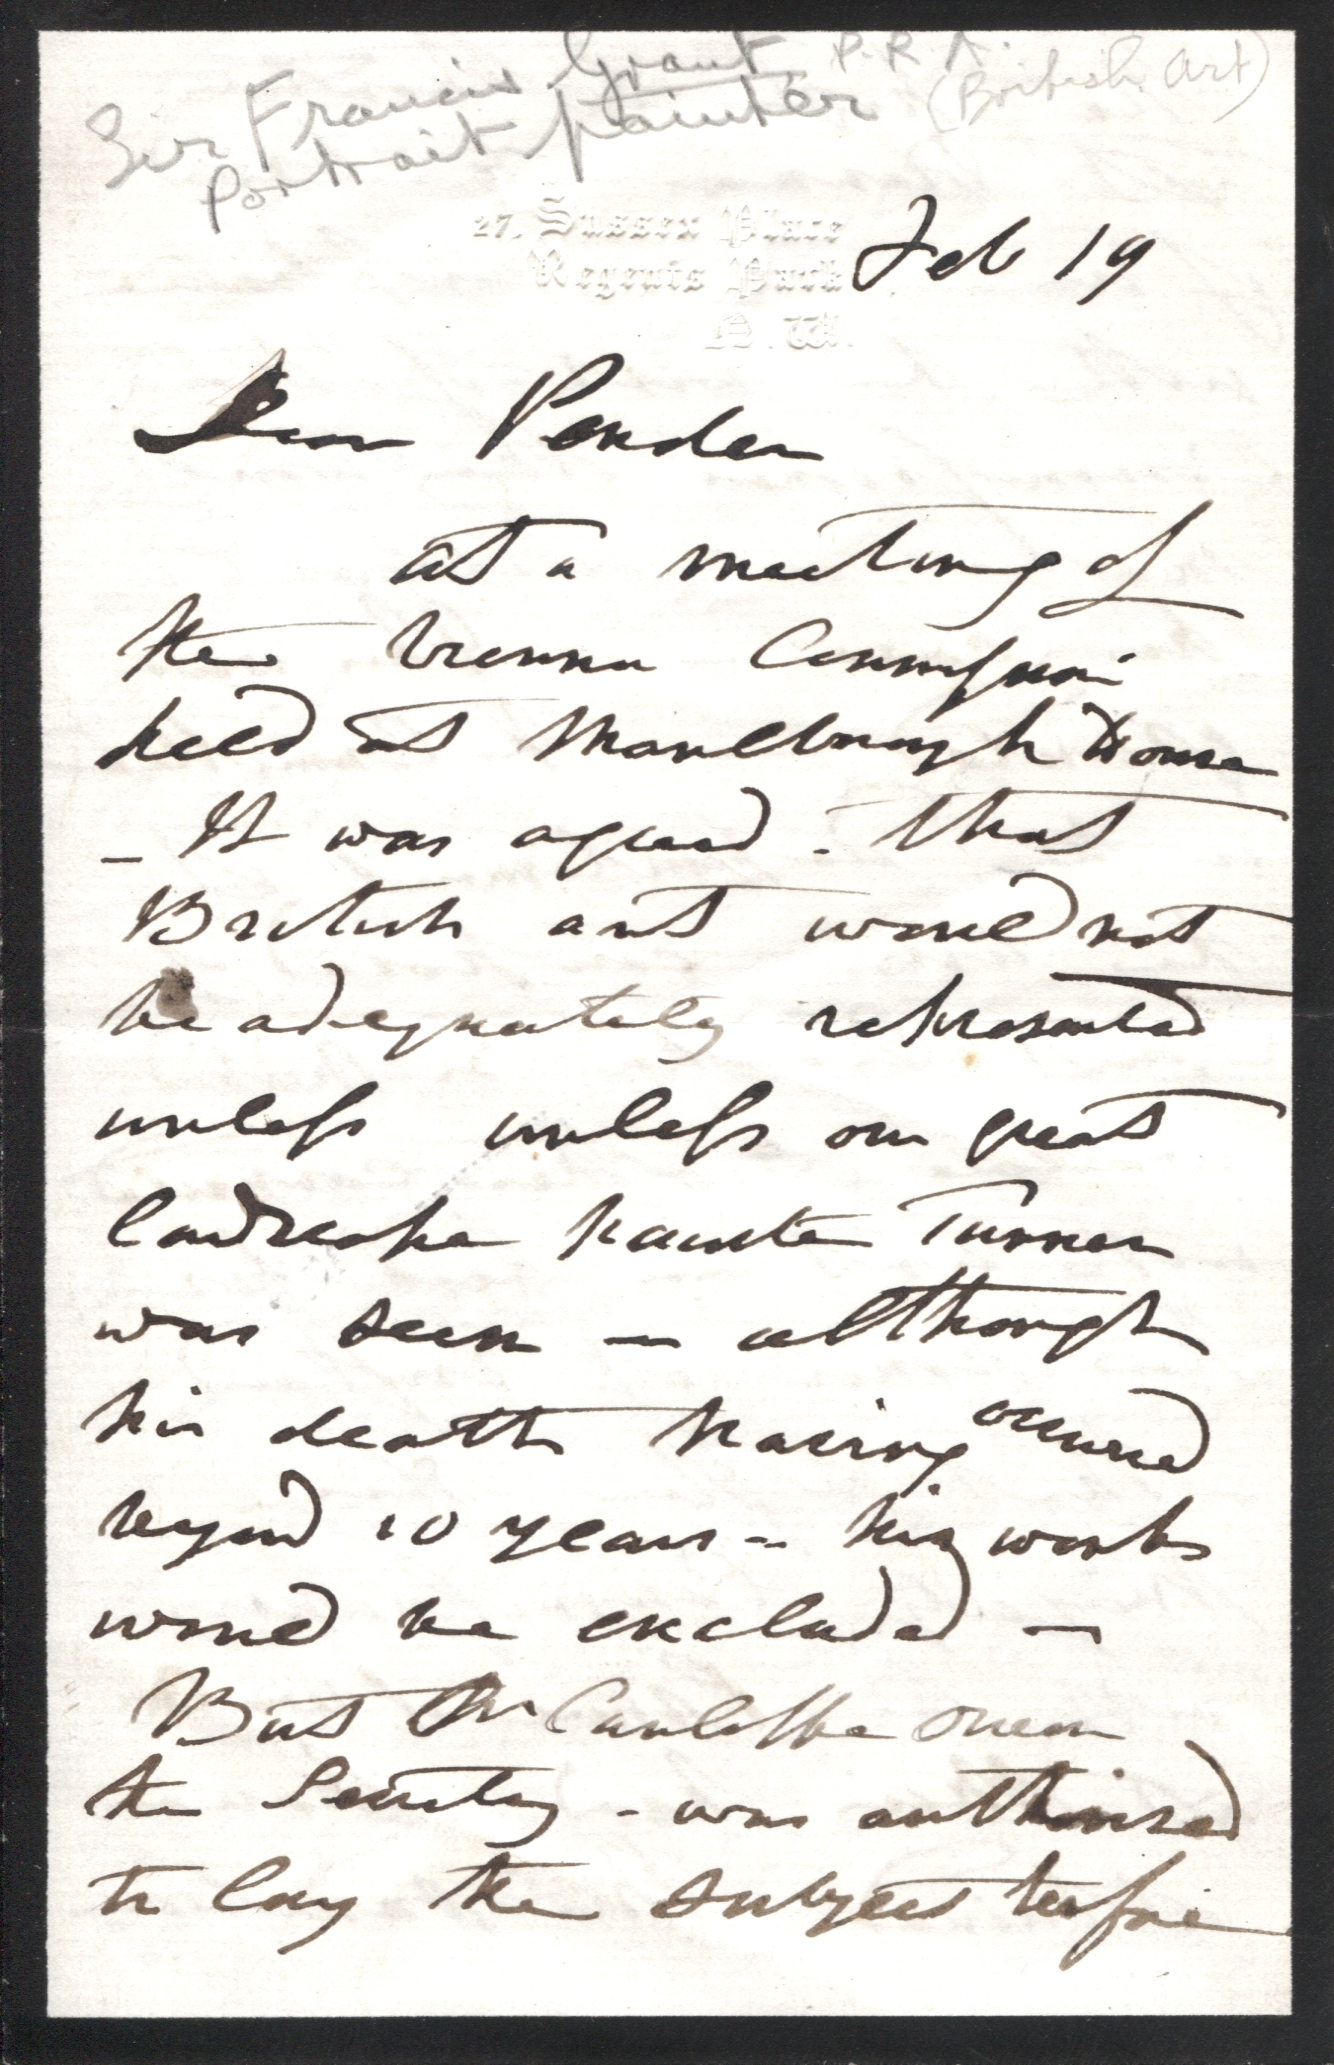 Sir Francis Grant P.R.A.
Portrait painter (British Art)
27, Sussex Place
Regents Park
N.W.
Feb 19
Dear Pender
at a meeting of
the Vienna Commission
held at Marlborough House
- It was agreed - that
British art would not
be adequately represented
unless unless our great
landscape painter Turner
was seen - although
his death having occured
beyond 10 years - his works
would be excluded -
But Mr Owen
the Secretary - was authorised
to lay the subject before